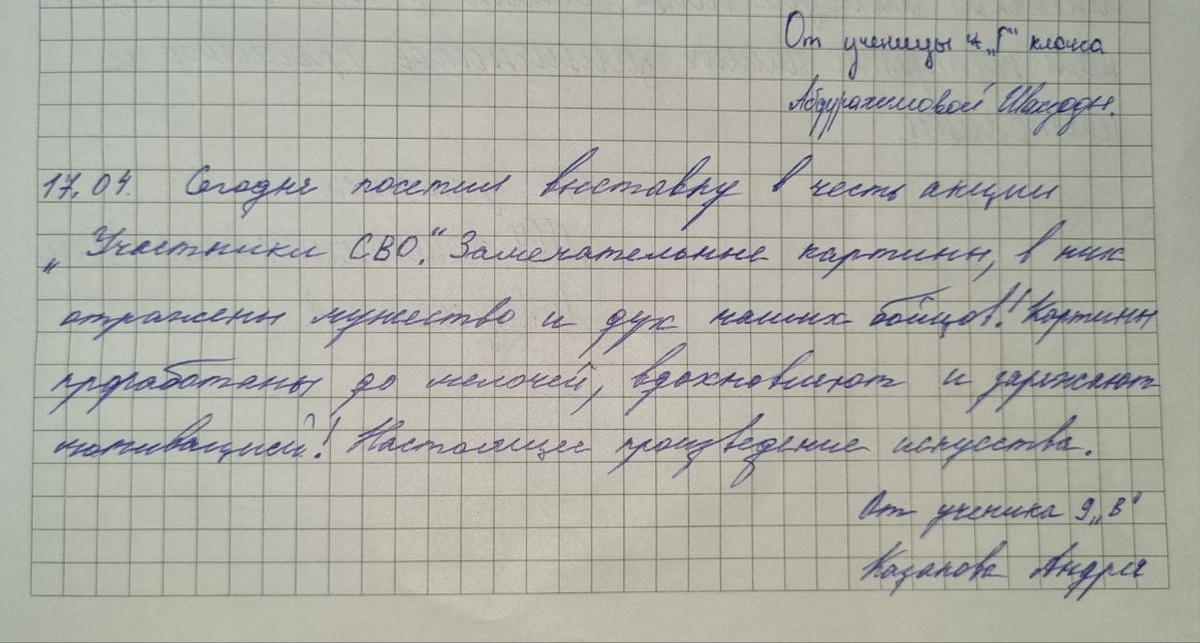 От ученицы 4 „Г" класса
Абдурахимовой
17.04. Сегодня посетил выставку в честь акции
„Участники СВО". Замечательные картины, в них
отражены мужество и дух наших бойцов! Картины
проработаны до мелочей, вдохновляют и заряжают
мотивацией! Настоящее произведение искусства.
От ученика 9 „В"
Казакова Андрея